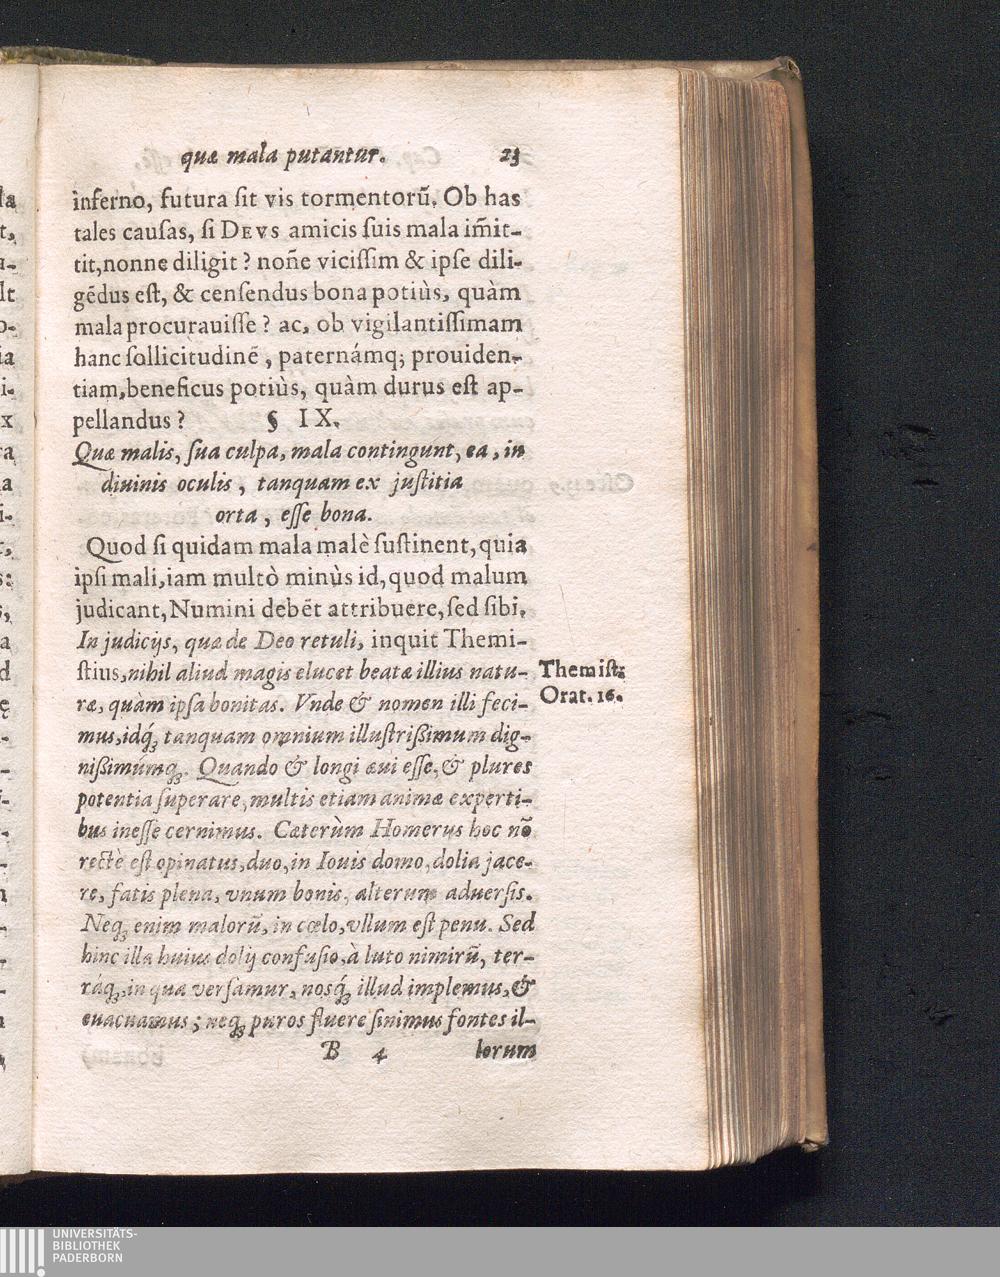 quæ mala putantur. 23
inferno, futura ſit vis tormentorũ. Ob has
tales cauſas, ſi DEVS amicis ſuis mala im̃it-
tit, nonne diligit? nõne viciſſim & ipſe dili-
gẽdus eſt, & cenſendus bona potiùs, quàm
mala procurauiſſe? ac, ob vigilantiſſimam
hanc ſollicitudinẽ, paternámq; prouiden-
tiam, beneficus potiùs, quàm durus eſt ap-
pellandus? § IX.
Quæ malis, ſua culpa, mala contingunt, ea, in
diuinis oculis, tanquam ex juſtitia
orta, eſſe bona.
Quod ſi quidam mala malè ſuſtinent, quia
ipſi mali, iam multò minùs id, quod malum
judicant, Numini debẽt attribuere, ſed ſibi.
In judicijs, quæ de Deo retuli, inquit Themi-
ſtius, nihil aliud magis elucet beatæ illius natu-
Themiſt:
ræ, quàm ipſa bonitas. Vnde & nomen illi feci-
Orat. 16.
mus, idq́; tanquam omnium illuſtrißimum dig-
nißimúmq;. Quando & longi æui eſſe, & plures
potentia ſuperare, multis etiam animæ experti-
bus ineſſe cernimus. Cæterùm Homerus hoc nõ
rectè eſt opinatus, duo, in Iouis domo, dolia jace-
re, fatis plena, vnum bonis, alterum aduerſis.
Neq; enim malorũ, in cœlo, vllum eſt penu. Sed
hinc illa huius dolij confuſio, à luto nimirũ, ter-
ráq;, in qua verſamur, nosq́; illud implemus, &
euacuamus; neq; puros fluere ſinimus fontes il-
B 4 lorum
UNIVERSITÄTS-
BIBLIOTHEK
PADERBORN